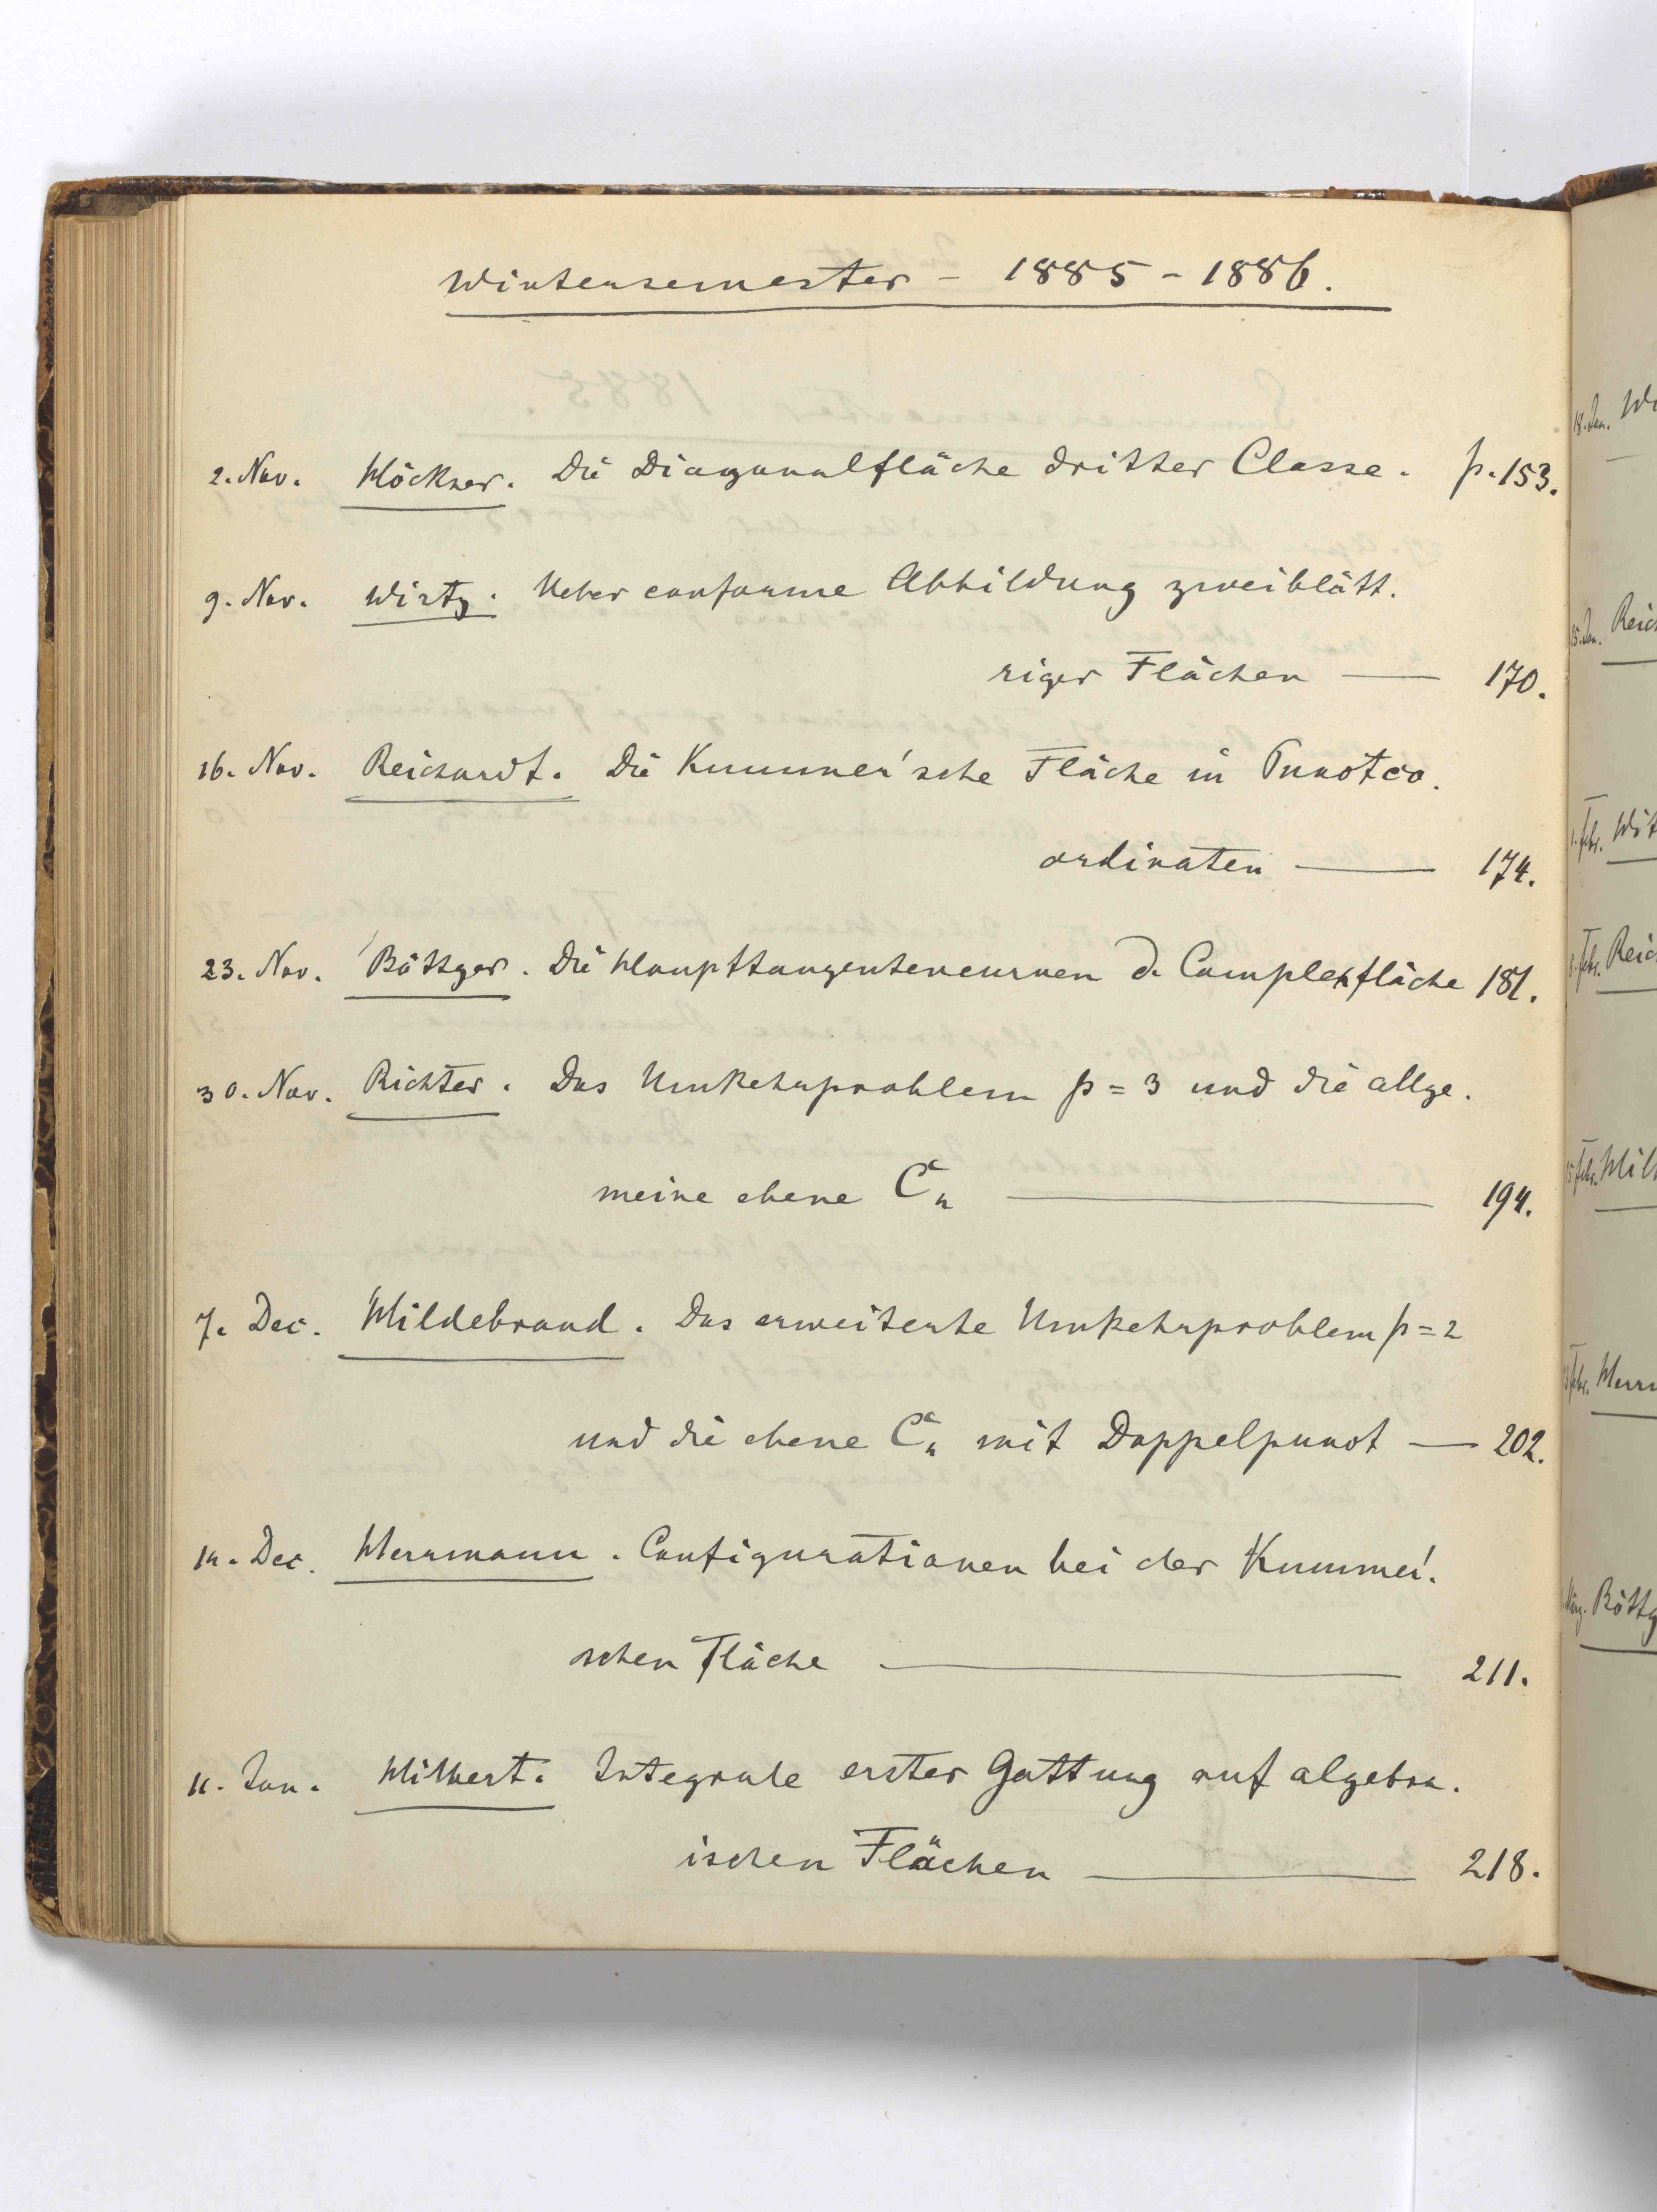 Wintersemester - 1885 - 1886.
2. Nov. Höckner. Die Diagonalfläche dritter Classe. p. 153.
9. Nov. Wirtz. Ueber conforme Abbildung zweiblätt.
riger Flächen — 170.
16. Nov. Reichardt. Die Kummer'sche Fläche in Punctco.
ordinaten — 174.
23. Nov. Böttger. Die Haupttangentencurven d. Complexfläche 181.
30. Nov. Richter. Das Umkehrproblem p = 3 und die allge.
meine ebene C₄ — 194.
7. Dec. Hildebrand. Das erweiterte Umkehrproblem p = 2
und die ebene C₄ mit Doppelpunct — 202.
14. Dec. Herrmann. Configurationen bei der Kummer'.
schen Fläche — 211.
11. Jan. Hilbert. Integrale erster Gattung auf algebra.
ischen Flächen — 218.
18. Jan. Wi
25. Jan. Reic
1. Febr.
8. Febr. Reic
15. Febr. Hil
Febr. Herr
Böttg